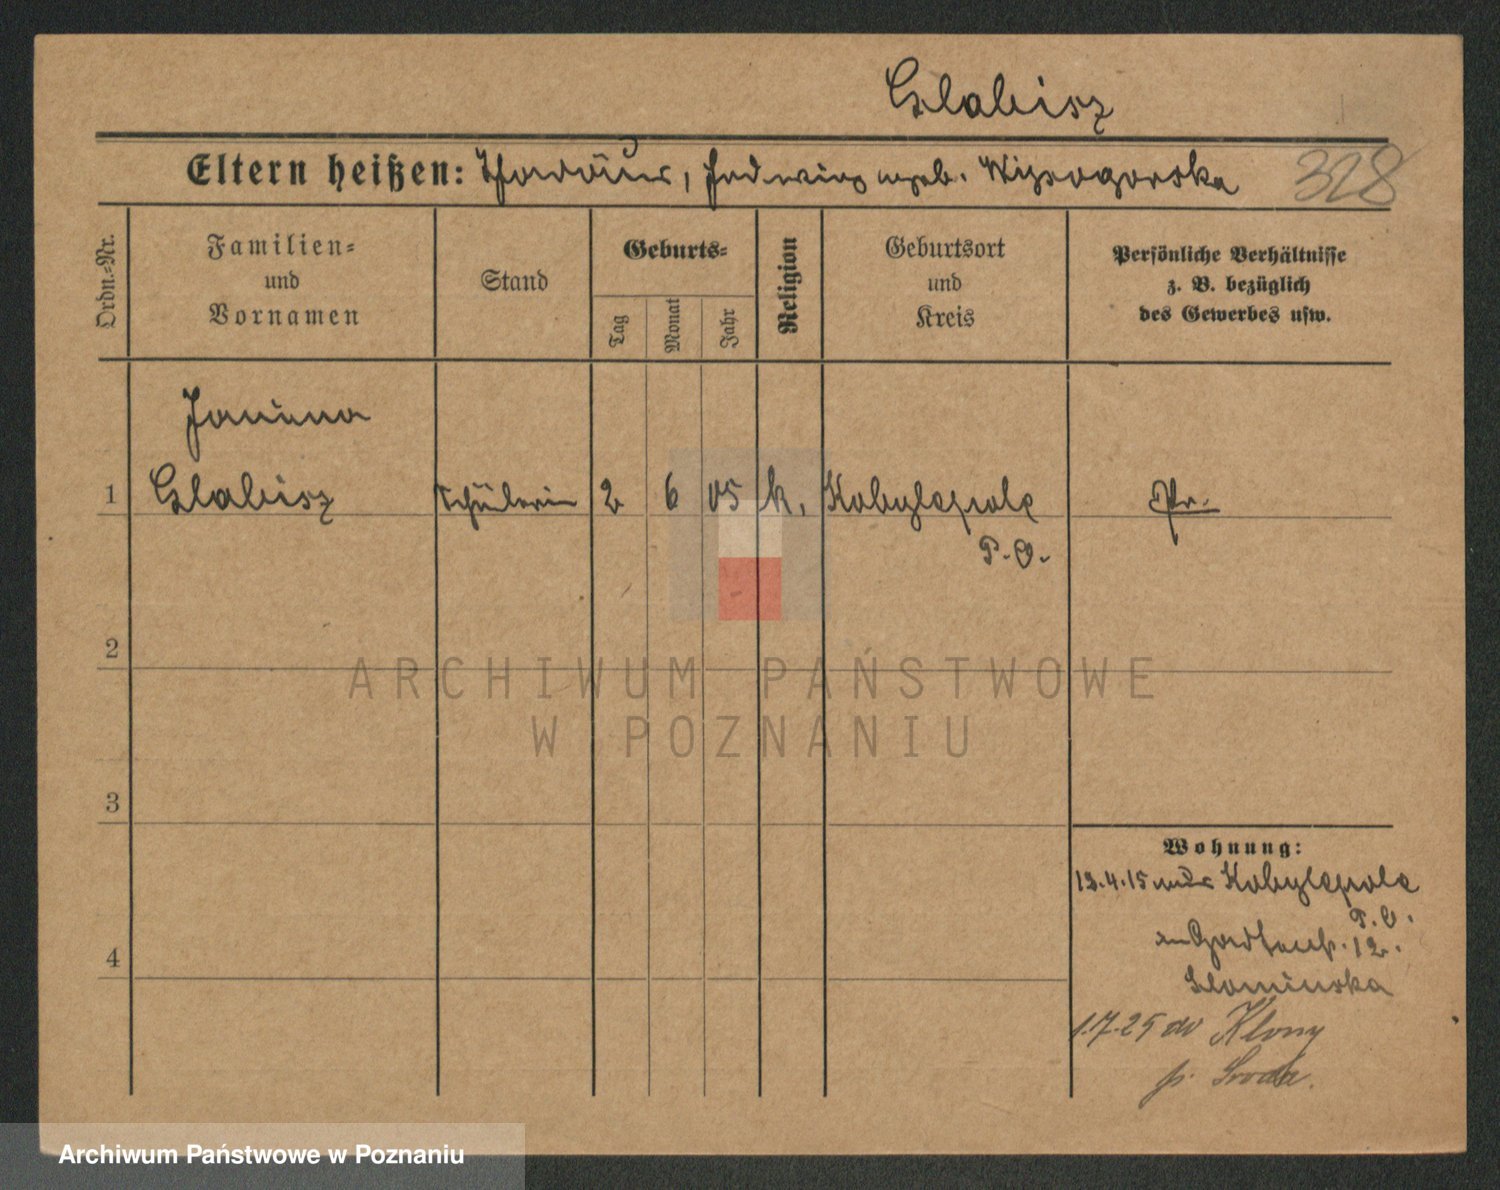 Glabisz
Eltern heißen: Thadäus, Hedwig geb. Wysogorska 328
Ordn.-Nr.
Familien-
und
Vornamen
Stand
Geburts-
Tag
Monat
Jahr
Religion
Geburtsort
und
Kreis
Persönliche Verhältnisse
z. B. bezüglich
des Gewerbes usw.
Janina
1 Glabisz Schülerin 2 6 05 k. Kobylepole Pr.
P. O.
2
3
4
Wohnung:
13.4.15 aus Kobylepole
P. O.
12.
Slominska
1.7.25 do Klony
p. Sroda.
ARCHIWUM PAŃSTWOWE
W POZNANIU
Archiwum Państwowe w Poznaniu